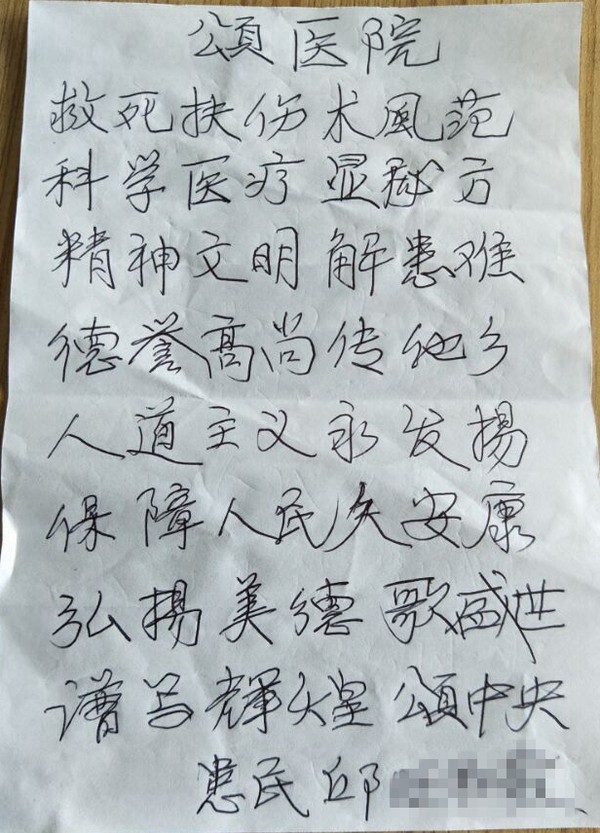 頌医院
救死扶伤术風范
科学医疗显秘方
精神文明解患难
德誉高尚传他乡
人道主义永发揚
保障人民久安康
弘揚美德歌盛世
谱写輝煌頌中央
患民邱